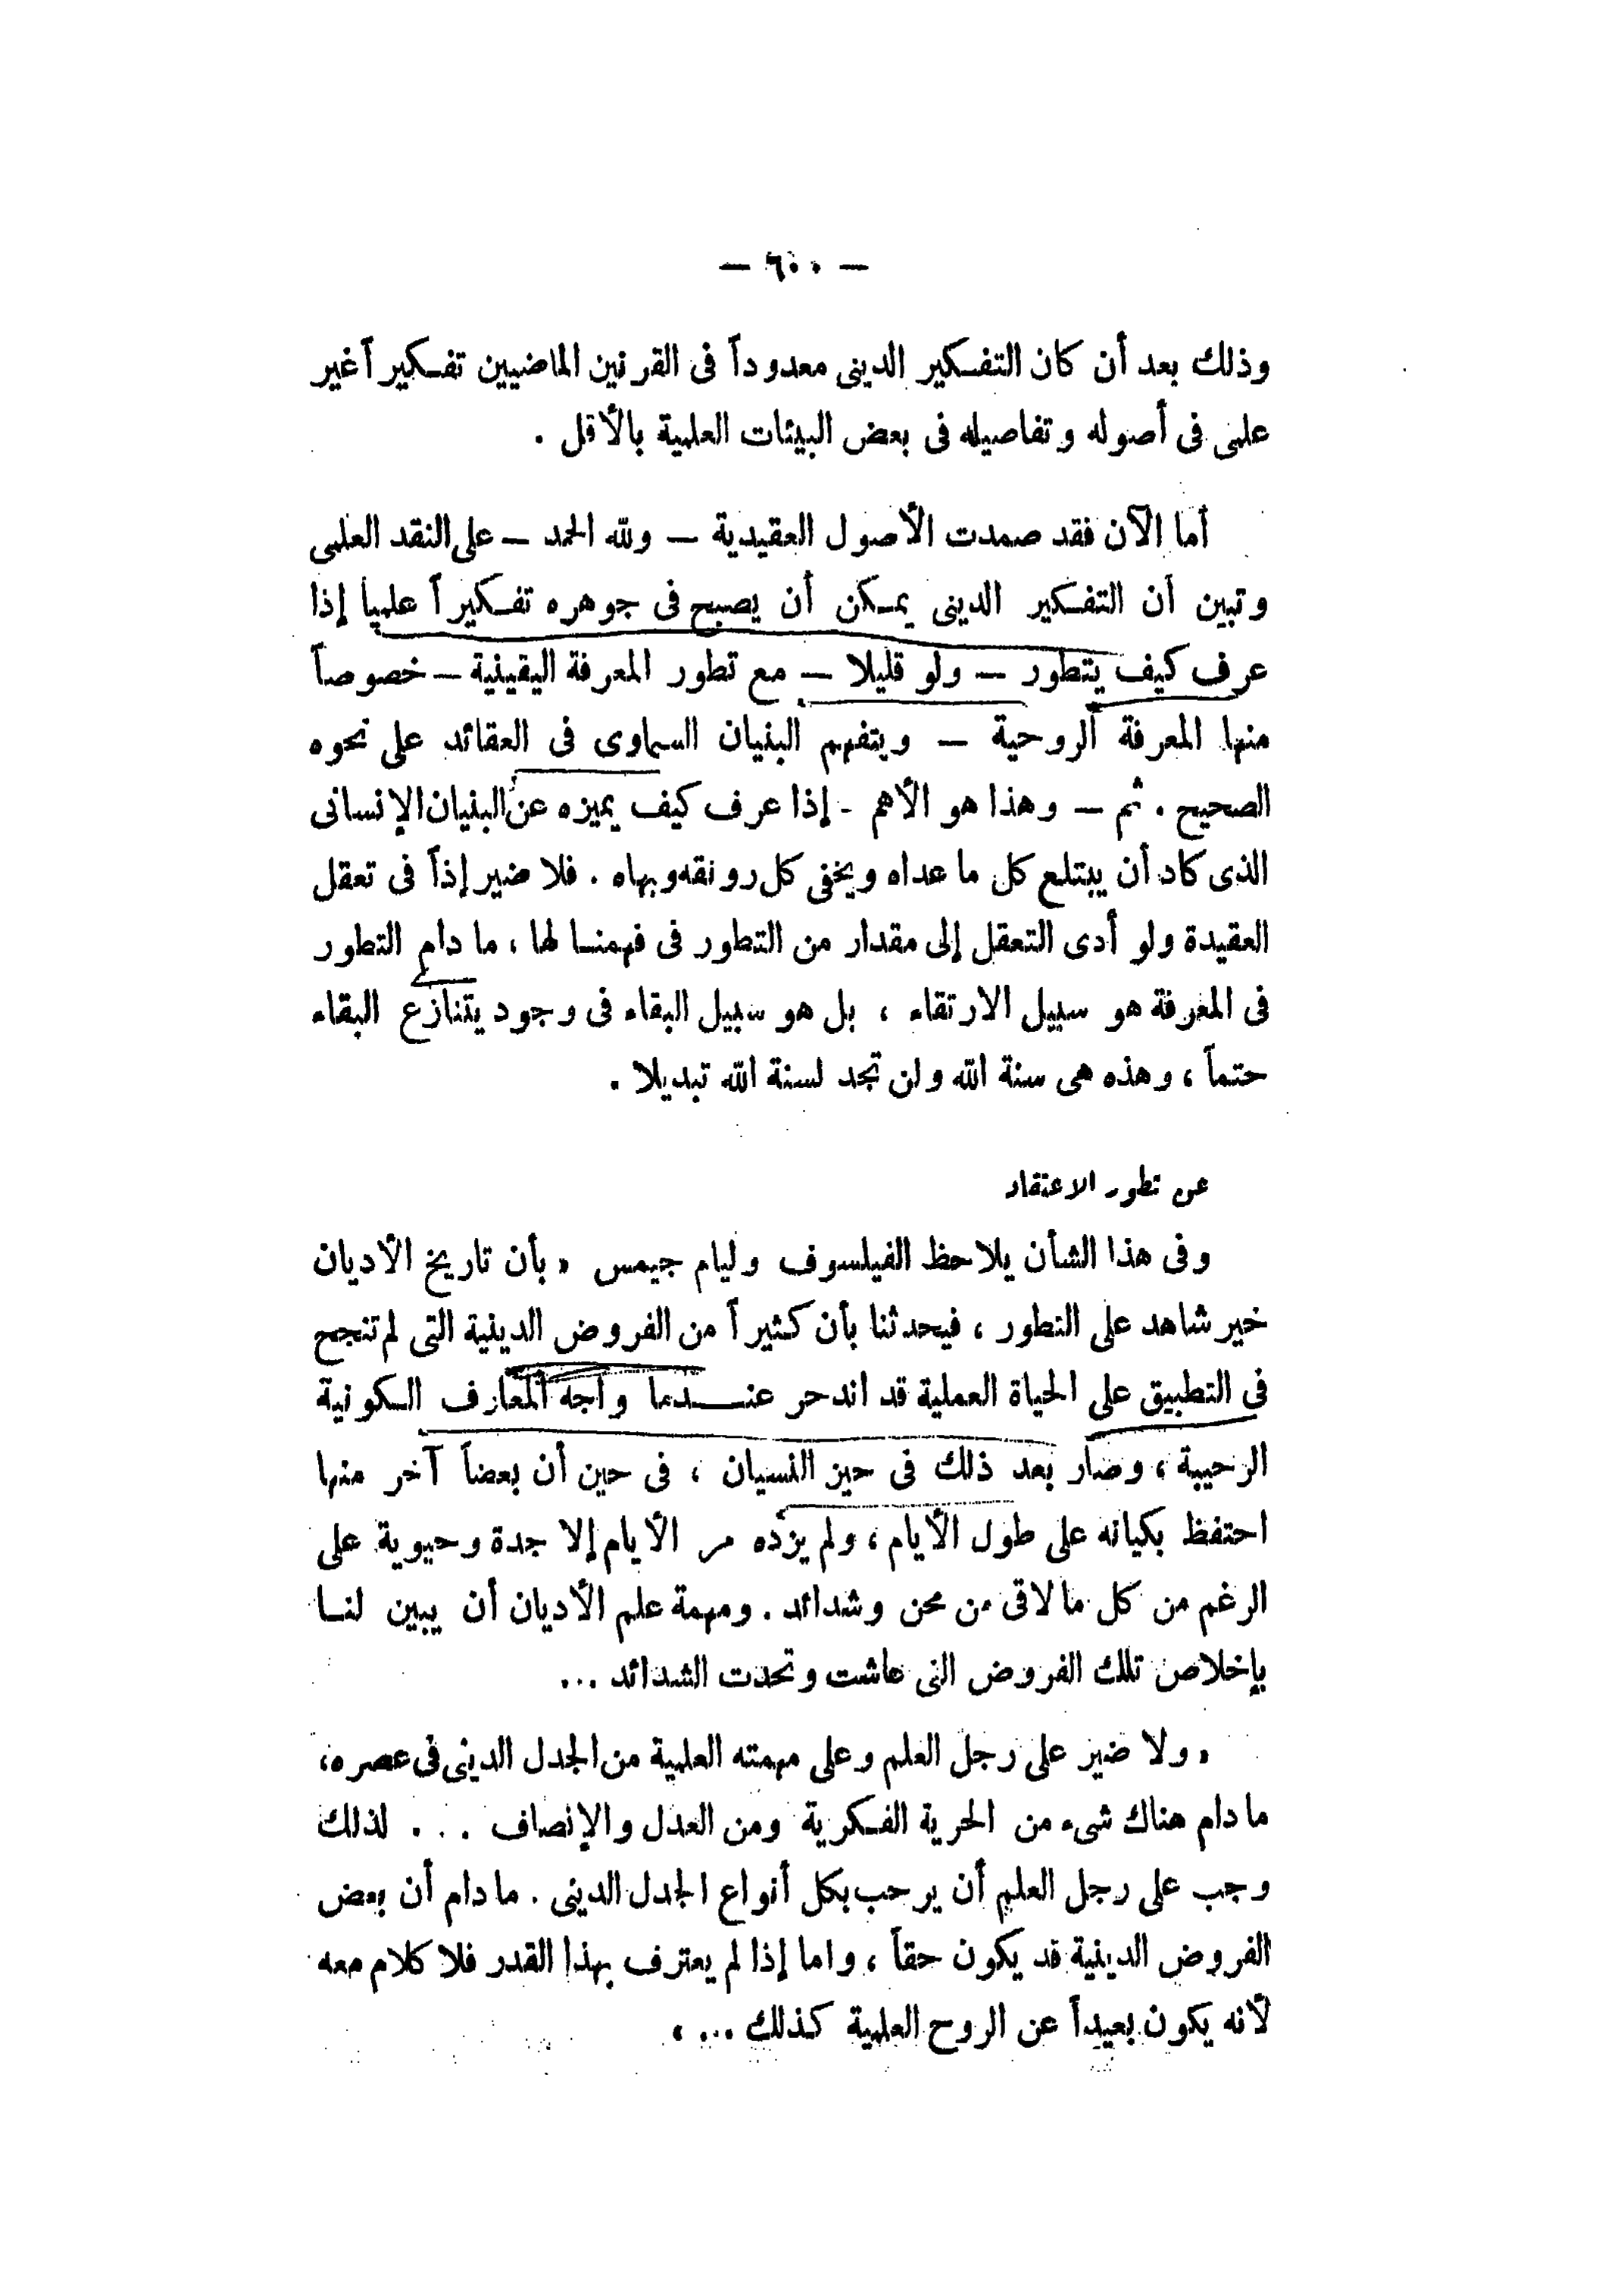 — ٦٠٠ —
وذلك بعد أن كان التفكير الدينى معدوداً فى القرنين الماضيين تفكيراً غير
علمى فى أصوله وتفاصيله فى بعض البيئات العلمية بالأقل .
أما الآن فقد صمدت الأصول العقيدية — ولله الحمد — على النقد العلمى
وتبين أن التفكير الدينى يمكن أن يصبح فى جوهره تفكيراً علمياً إذا
عرف كيف يتطور — ولو قليلا — مع تطور المعرفة اليقينية — خصوصاً
منها المعرفة الروحية — ويتفهم البنيان السماوى فى العقائد على نحوه
الصحيح . ثم — وهذا هو الأهم - إذا عرف كيف يميزه عن البنيان الإنسانى
الذى كاد أن يبتلع كل ما عداه ويخفى كل رونقه وبهاه . فلا ضير إذاً فى تعقل
العقيدة ولو أدى التعقل إلى مقدار من التطور فى فهمنا لها ، ما دام التطور
فى المعرفة هو سبيل الارتقاء ، بل هو سبيل البقاء فى وجود يتنازع البقاء
حتماً ، وهذه هى سنة الله ولن تجد لسنة الله تبديلا .
عن تطور الاعتقاد
وفى هذا الشأن يلاحظ الفيلسوف وليام جيمس « بأن تاريخ الأديان
خير شاهد على التطور ، فيحدثنا بأن كثيراً من الفروض الدينية التى لم تنجح
فى التطبيق على الحياة العملية قد اندحر عندما واجه المعارف الكونية
الرحيبة ، وصار بعد ذلك فى حيز النسيان ، فى حين أن بعضاً آخر منها
احتفظ بكيانه على طول الأيام ، ولم يزده مر الأيام إلا جدة وحيوية على
الرغم من كل ما لاقى من محن وشدائد . ومهمة علم الأديان أن يبين لنا
بإخلاص تلك الفروض التى عاشت وتحدت الشدائد ...
« ولا ضير على رجل العلم وعلى مهمته العلمية من الجدل الدينى فى عصره ،
ما دام هناك شىء من الحرية الفكرية ومن العدل والإنصاف . . . لذلك
وجب على رجل العلم أن يرحب بكل أنواع الجدل الدينى . ما دام أن بعض
الفروض الدينية قد يكون حقاً ، واما إذا لم يعترف بهذا القدر فلا كلام معه
لأنه يكون بعيداً عن الروح العلمية كذلك ... »